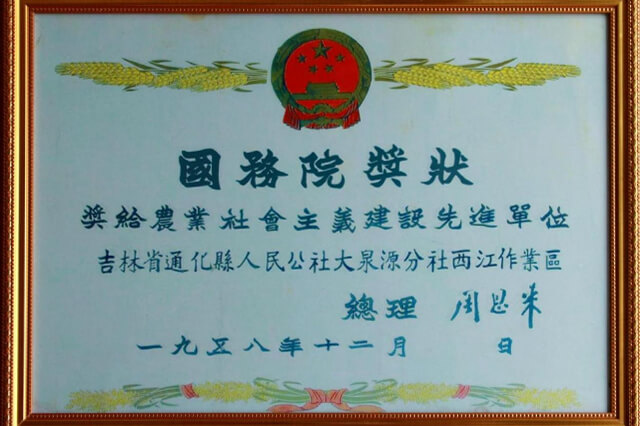 國務院獎狀
奖給農業社會主義建設先進單位
吉林省通化縣人民公社大泉源分社西江作業區
總理 周恩来
一九五八年十二月 日